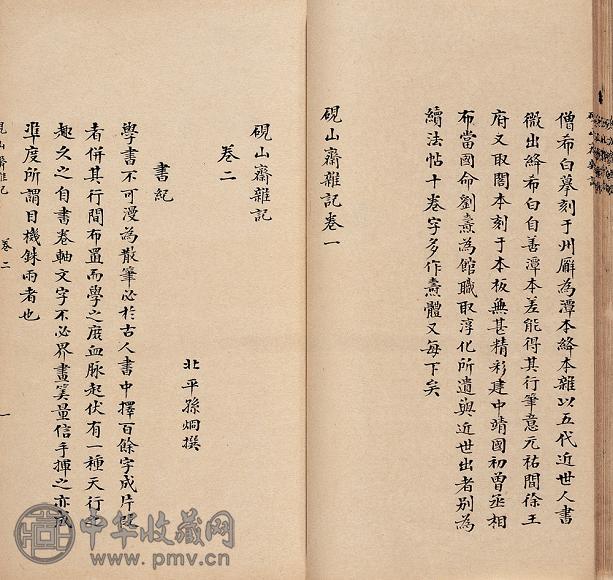 僧希白摹刻于州廨為潭本絳本雜以五代近世人書
微出絳希白自善潭本差能得其行筆意元祐間徐王
府又取閣本刻于本板無甚精彩建中靖國初曾丞相
布當國命劉燾為館職取淳化所遺與近世出者別為
續法帖十卷字多作燾體又每下矣
硯山齋雜記卷一
硯山齋雜記
卷二
北平孫炯撰
書紀
學書不可漫為散筆必於古人書中擇百餘字成片段
者併其行間布置而學之庶血脉起伏有一種天行之
趣久之自書卷軸文字不必界畫筭量信手揮之亦成
準度所謂目機銖兩者也
硯山齋雜記 卷二 一
中华收藏网
www.pmv.cn